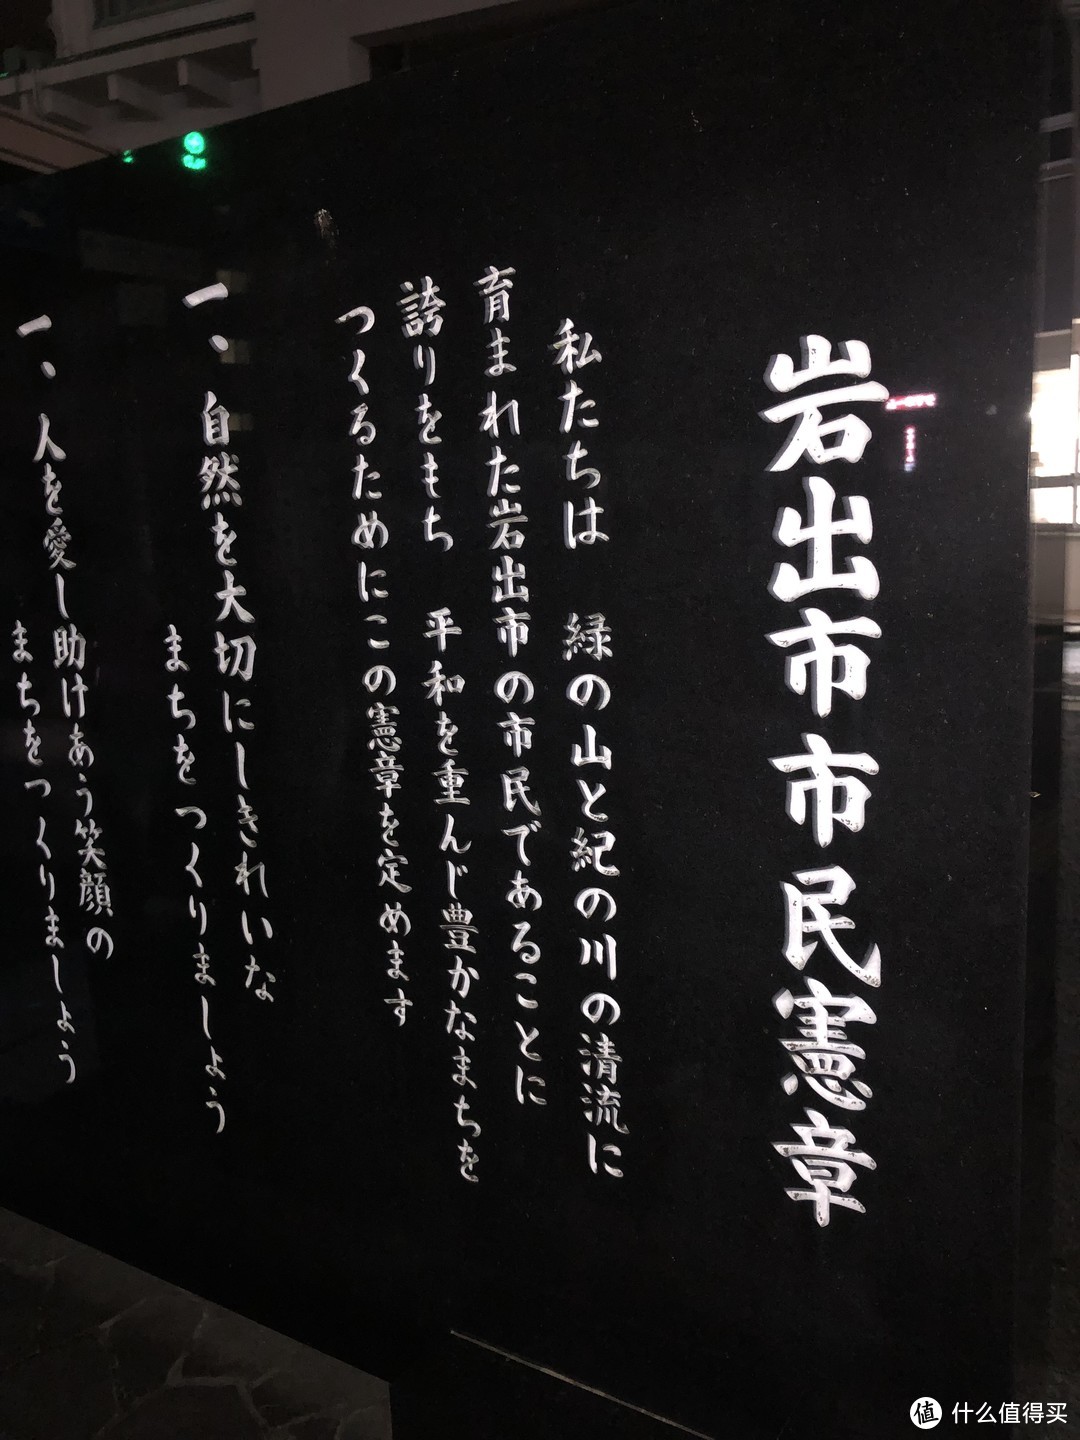 岩出市市民憲章
私たちは　緑の山と紀の川の清流に
育まれた岩出市の市民であることに
誇りをもち　平和を重んじ豊かなまちを
つくるためにこの憲章を定めます
一、自然を大切にしきれいな
まちをつくりましょう
一、人を愛し助けあう笑顔の
まちをつくりましょう
值 什么值得买